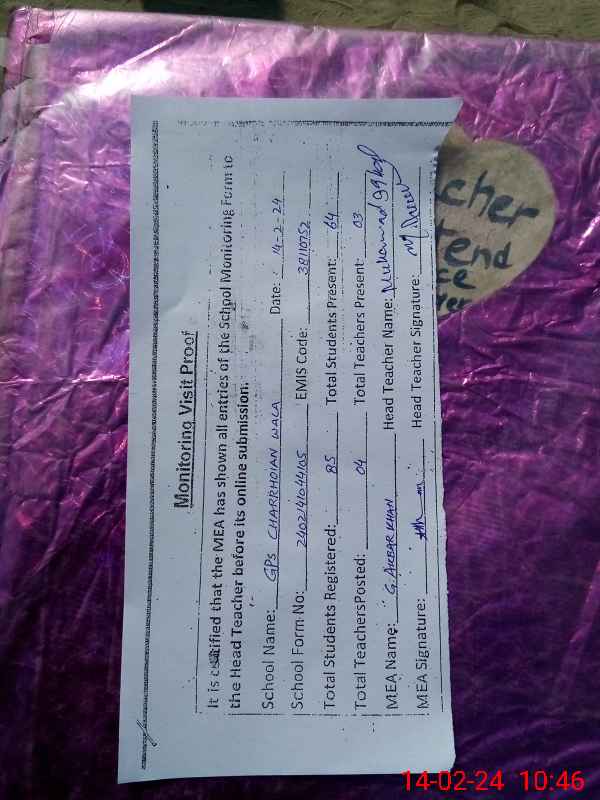 Monitoring Visit Proof
It is certified that the MEA has shown all entries of the School Monitoring Form to
the Head Teacher before its online submission.
School Name: GPS CHARRHOIAN WALA Date: 14-2-24
School Form No: 2402141044105 EMIS Code: 38110752
Total Students Registered: 85 Total Students Present: 64
Total TeachersPosted: 04 Total Teachers Present: 03
MEA Name: G. AKBAR KHAN Head Teacher Name: Muhammad
MEA Signature: Head Teacher Signature:
cher
end
ce
14-02-24 10:46